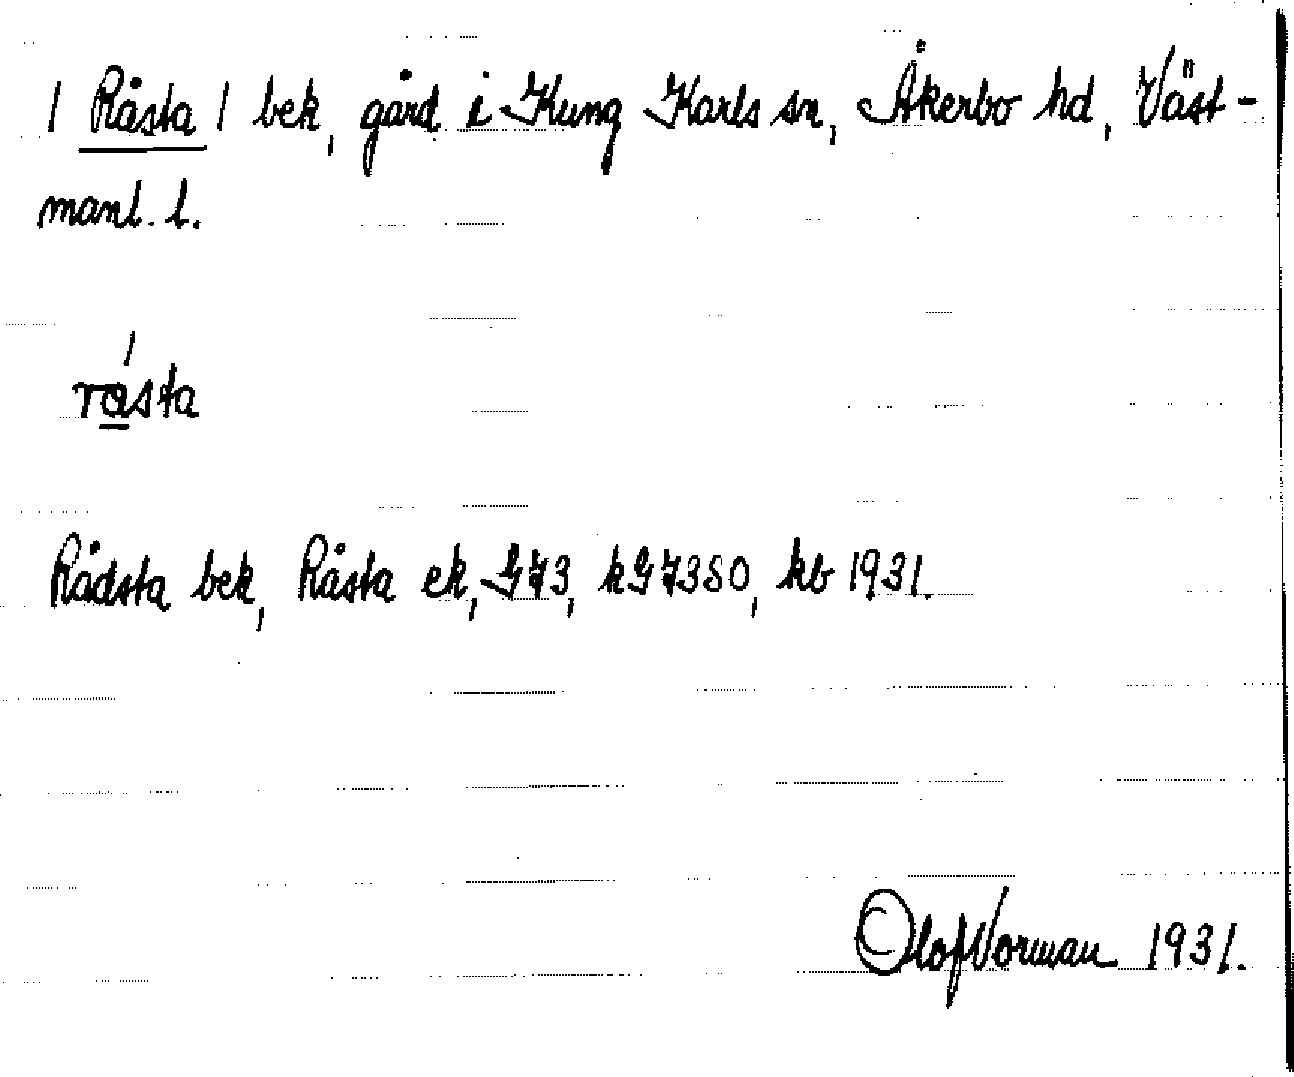 / Råsta / bek, gård i Kung Karls sn, Åkerbo hd, Väst-
manl. l.
rásta
Rådsta bek, Råsta ek, G73, kG7350, kb 1931.
Olof Vorman 1931.